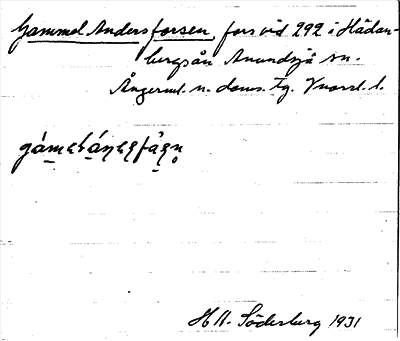 Gammel Andersforsen, fors vid 292 i Hädan-
bergsån Anundsjö sn.
Ångerml. n. doms. Tg. Vnorrl. l.
H H. Söderberg 1931